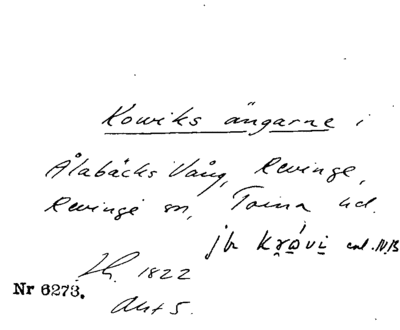 Kowiks ängarne i
Ålabäcks Vång, Revinge,
Revinge sn, Torna hd.
jfr krávi enl. NB
Lh. 1822
Nr 6273.
Akt 5.